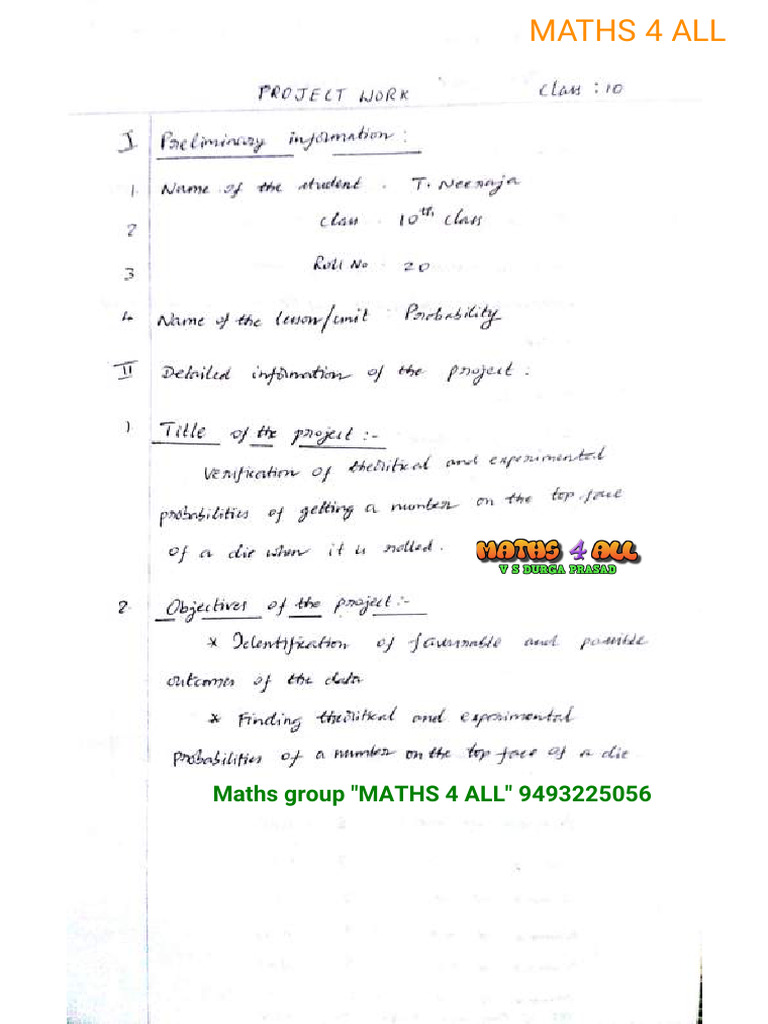 MATHS 4 ALL
PROJECT WORK Class : 10
I Preliminary information :
1. Name of the student . T. Neeraja
2 Class . 10th Class
3 Roll No . 20
4. Name of the lesson/unit . Probability
II Detailed information of the project :
1) Title of the project :-
Verification of theoritical and experimental
probabilities of getting a number on the top face
of a die when it is rolled.
MATHS 4 ALL
V S DURGA PRASAD
2. Objectives of the project :-
* Identification of favourable and possible
outcomes of the data
* Finding theoritical and experimental
probabilities of a number on the top face of a die
Maths group "MATHS 4 ALL" 9493225056